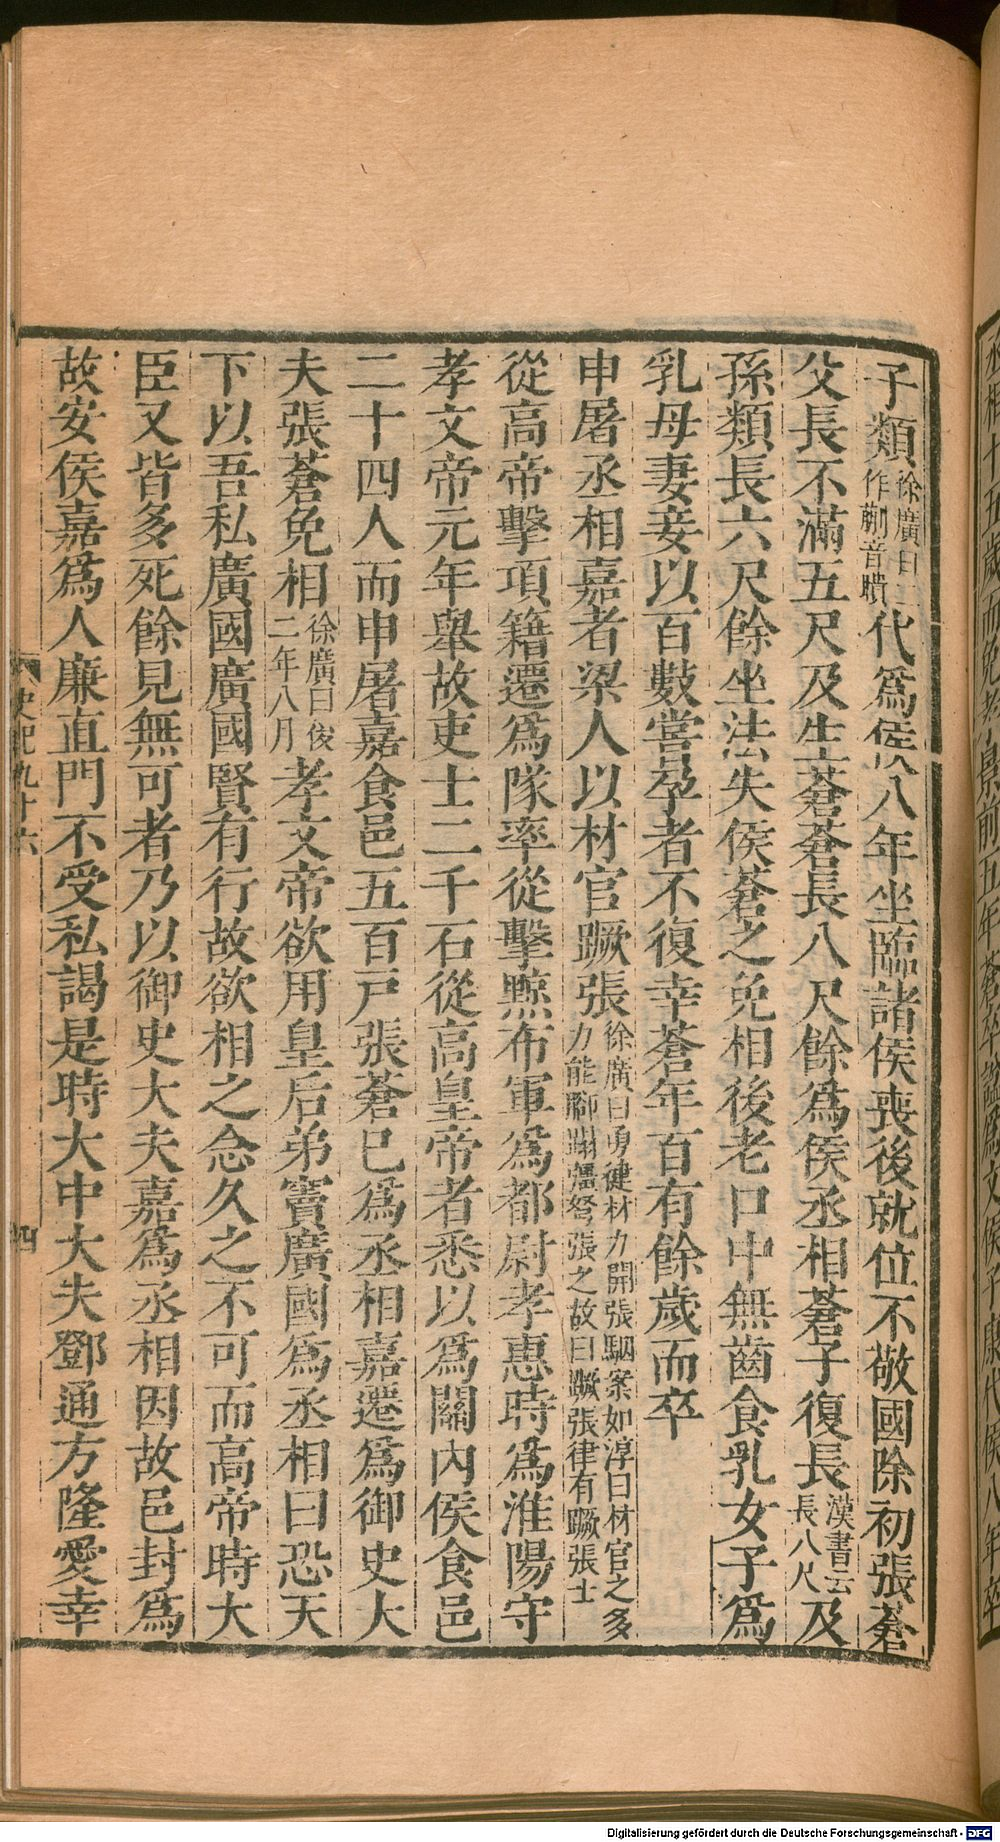 子類徐廣曰一作蒯音聵代爲侯八年坐臨諸侯喪後就位不敬國除初張蒼
父長不滿五尺及生蒼蒼長八尺餘爲侯丞相蒼子復長漢書云長八尺及
孫類長六尺餘坐法失侯蒼之免相後老口中無齒食乳女子爲
乳母妻妾以百數嘗孕者不復幸蒼年百有餘歲而卒
申屠丞相嘉者梁人以材官蹶張徐廣曰勇健材力開張駰案如淳曰材官之多力能腳蹋彊弩張之故曰蹶張律有蹶張士
從高帝擊項籍遷爲隊率從擊黥布軍爲都尉孝惠時爲淮陽守
孝文帝元年舉故吏士二千石從高皇帝者悉以爲關內侯食邑
二十四人而申屠嘉食邑五百戸張蒼已爲丞相嘉遷爲御史大
夫張蒼免相徐廣曰後二年八月孝文帝欲用皇后弟竇廣國爲丞相曰恐天
下以吾私廣國廣國賢有行故欲相之念久之不可而高帝時大
臣又皆多死餘見無可者乃以御史大夫嘉爲丞相因故邑封爲
故安侯嘉爲人廉直門不受私謁是時大中大夫鄧通方隆愛幸
史記九十六
四
丞相十五歲而免孝景前五年蒼卒謚爲文侯子康代侯八年卒
Digitalisierung gefördert durch die Deutsche Forschungsgemeinschaft - DFG